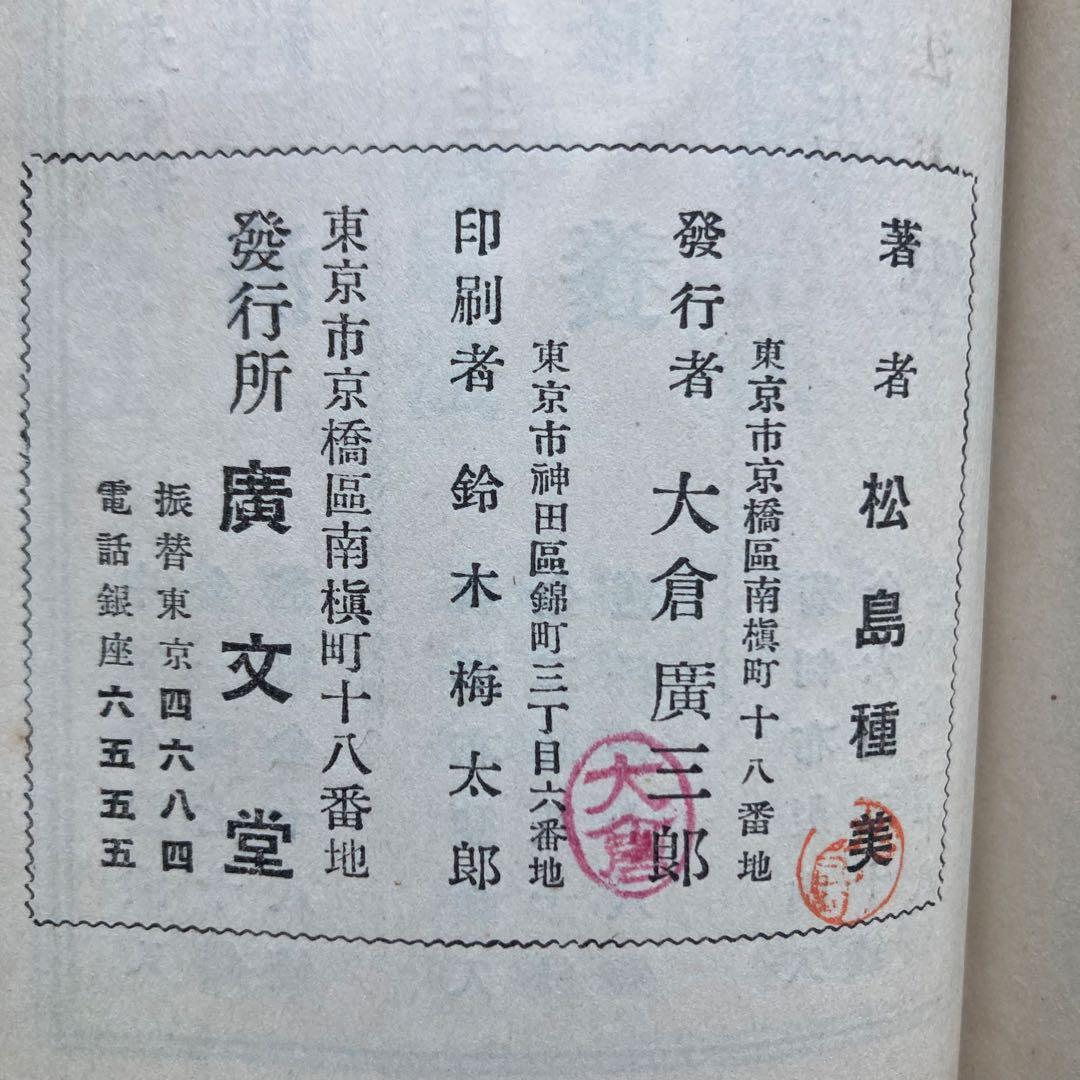 著者 松島種美
東京市京橋區南槇町十八番地
發行者 大倉廣三郎
大倉
東京市神田區錦町三丁目六番地
印刷者 鈴木梅太郎
東京市京橋區南槇町十八番地
發行所 廣文堂
振替東京四六八四
電話銀座六五五五